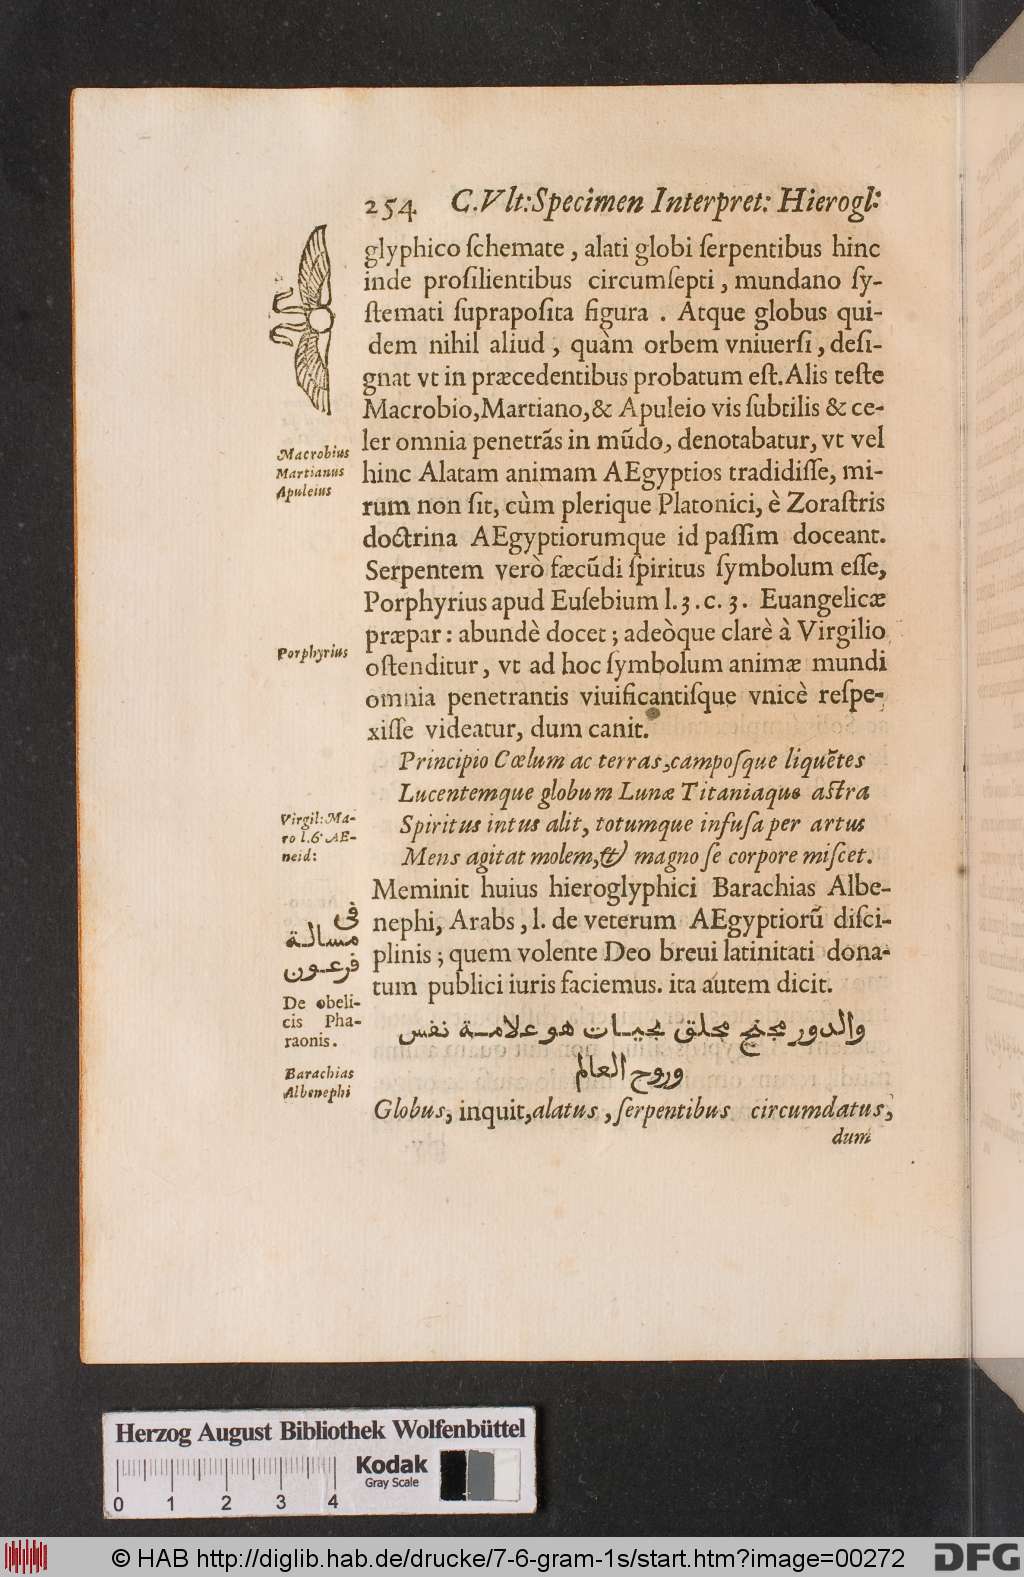 254 C.Vlt:Specimen Interpret: Hierogl:
glyphico ſchemate, alati globi ſerpentibus hinc
inde proſilientibus circumſepti, mundano ſy-
ſtemati ſuprapoſita figura. Atque globus qui-
dem nihil aliud, quàm orbem vniuerſi, deſi-
gnat vt in præcedentibus probatum eſt. Alis teſte
Macrobio, Martiano, & Apuleio vis ſubtilis & ce-
ler omnia penetrãs in mũdo, denotabatur, vt vel
hinc Alatam animam AEgyptios tradidiſſe, mi-
rum non ſit, cùm plerique Platonici, è Zoraſtris
doctrina AEgyptiorumque id paſſim doceant.
Serpentem verò fæcũdi ſpiritus ſymbolum eſſe,
Porphyrius apud Euſebium l.3.c.3. Euangelicæ
præpar: abundè docet; adeòque clarè à Virgilio
oſtenditur, vt ad hoc ſymbolum animæ mundi
omnia penetrantis viuificantiſque vnicè reſpe-
xiſſe videatur, dum canit.
Principio Cœlum ac terras, campoſque liquẽtes
Lucentemque globum Lunæ Titaniaque aſtra
Spiritus intus alit, totumque infuſa per artus
Mens agitat molem, & magno ſe corpore miſcet.
Meminit huius hieroglyphici Barachias Albe-
nephi, Arabs, l. de veterum AEgyptiorũ diſci-
plinis; quem volente Deo breui latinitati dona-
tum publici iuris faciemus. ita autem dicit.
والدور مجنح مجلق بحيات هو علامة نفس
وروح العالم
Globus, inquit, alatus, ſerpentibus circumdatus,
dum
Macrobius
Martianus
Apuleius
Porphyrius
Virgil: Ma-
ro l.6 AE-
neid:
فى
مسالة
فرعون
De obeli-
cis Pha-
raonis.
Barachias
Albenephi
Herzog August Bibliothek Wolfenbüttel
Kodak
Gray Scale
0 1 2 3 4
© HAB http://diglib.hab.de/drucke/7-6-gram-1s/start.htm?image=00272
DFG